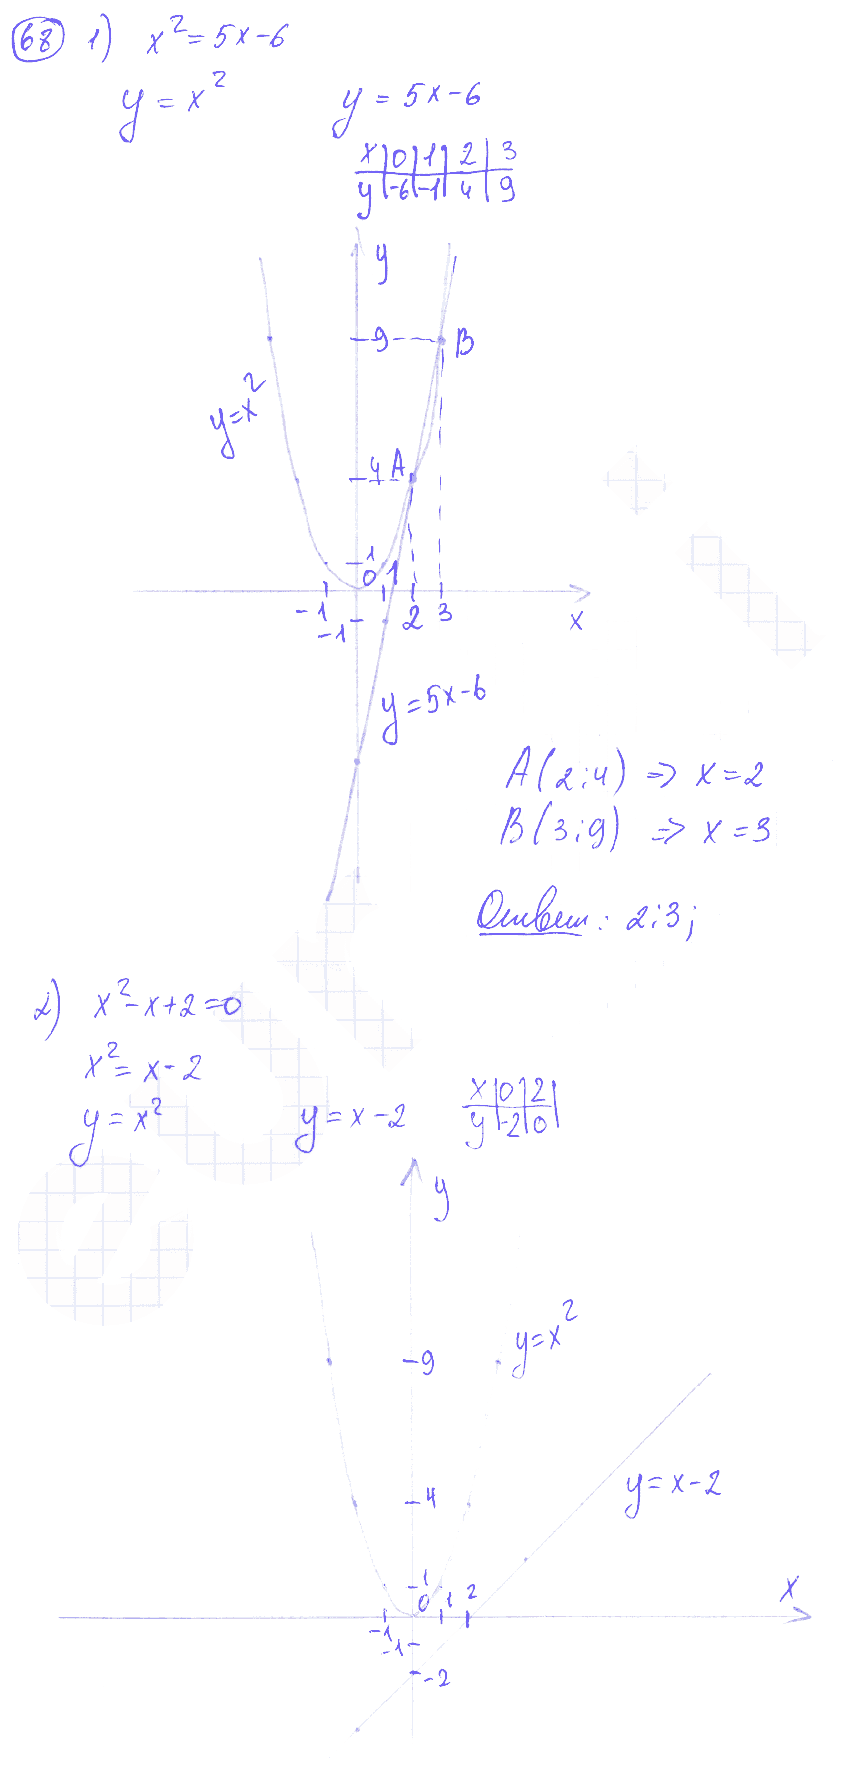 68 1) x² = 5x - 6
y = x² y = 5x - 6
x | 0 | 1 | 2 | 3
y | -6 | -1 | 4 | 9
y
9 B
y = x²
4 A
1
0 1
-1 2 3
-1 x
y = 5x - 6
A(2;4) => x = 2
B(3;9) => x = 3
Ответ: 2;3;
2) x² - x + 2 = 0
x² = x - 2
y = x² y = x - 2
x | 0 | 2 |
y | -2 | 0 |
y
y = x²
9
y = x - 2
4
1 x
0 1 2
-1
-1
-2